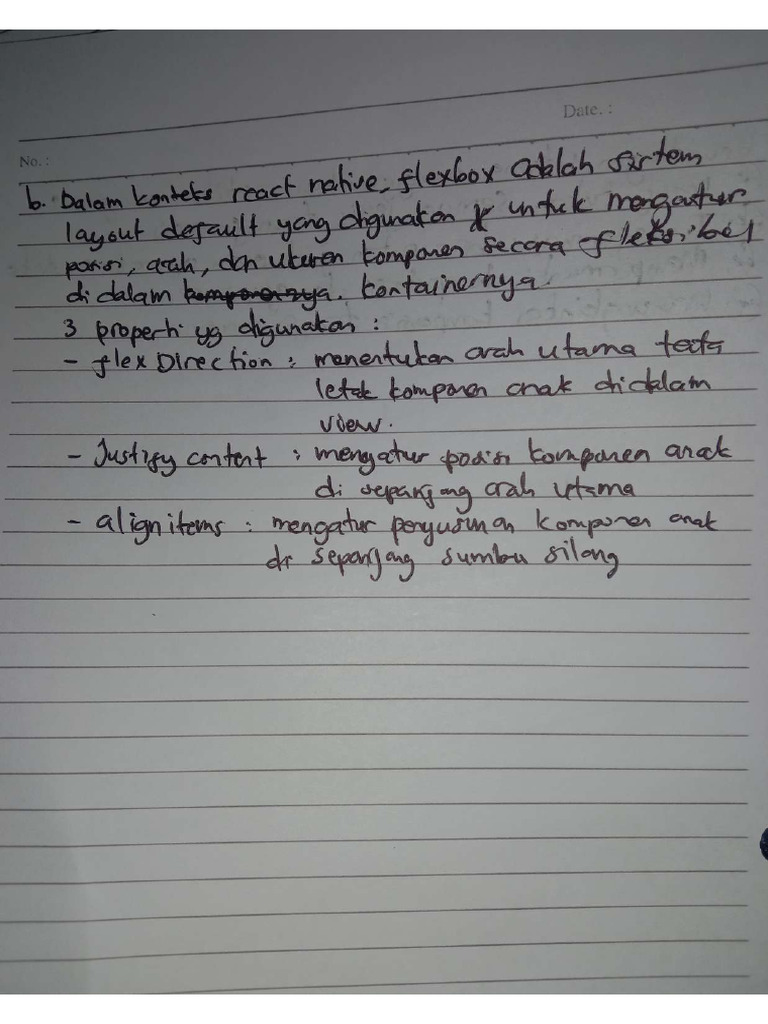 Date. :
No. :
b. Dalam konteks react native, flexbox adalah sistem
layout default yang digunakan untuk mengatur
posisi, arah, dan ukuran komponen secara fleksibel
di dalam komponennya. kontainernya.
3 properti yg digunakan :
- flex Direction : menentukan arah utama tata
letak komponen anak didalam
view.
- Justify content : mengatur posisi komponen anak
di sepanjang arah utama
- align items : mengatur penyusunan komponen anak
di sepanjang sumbu silang